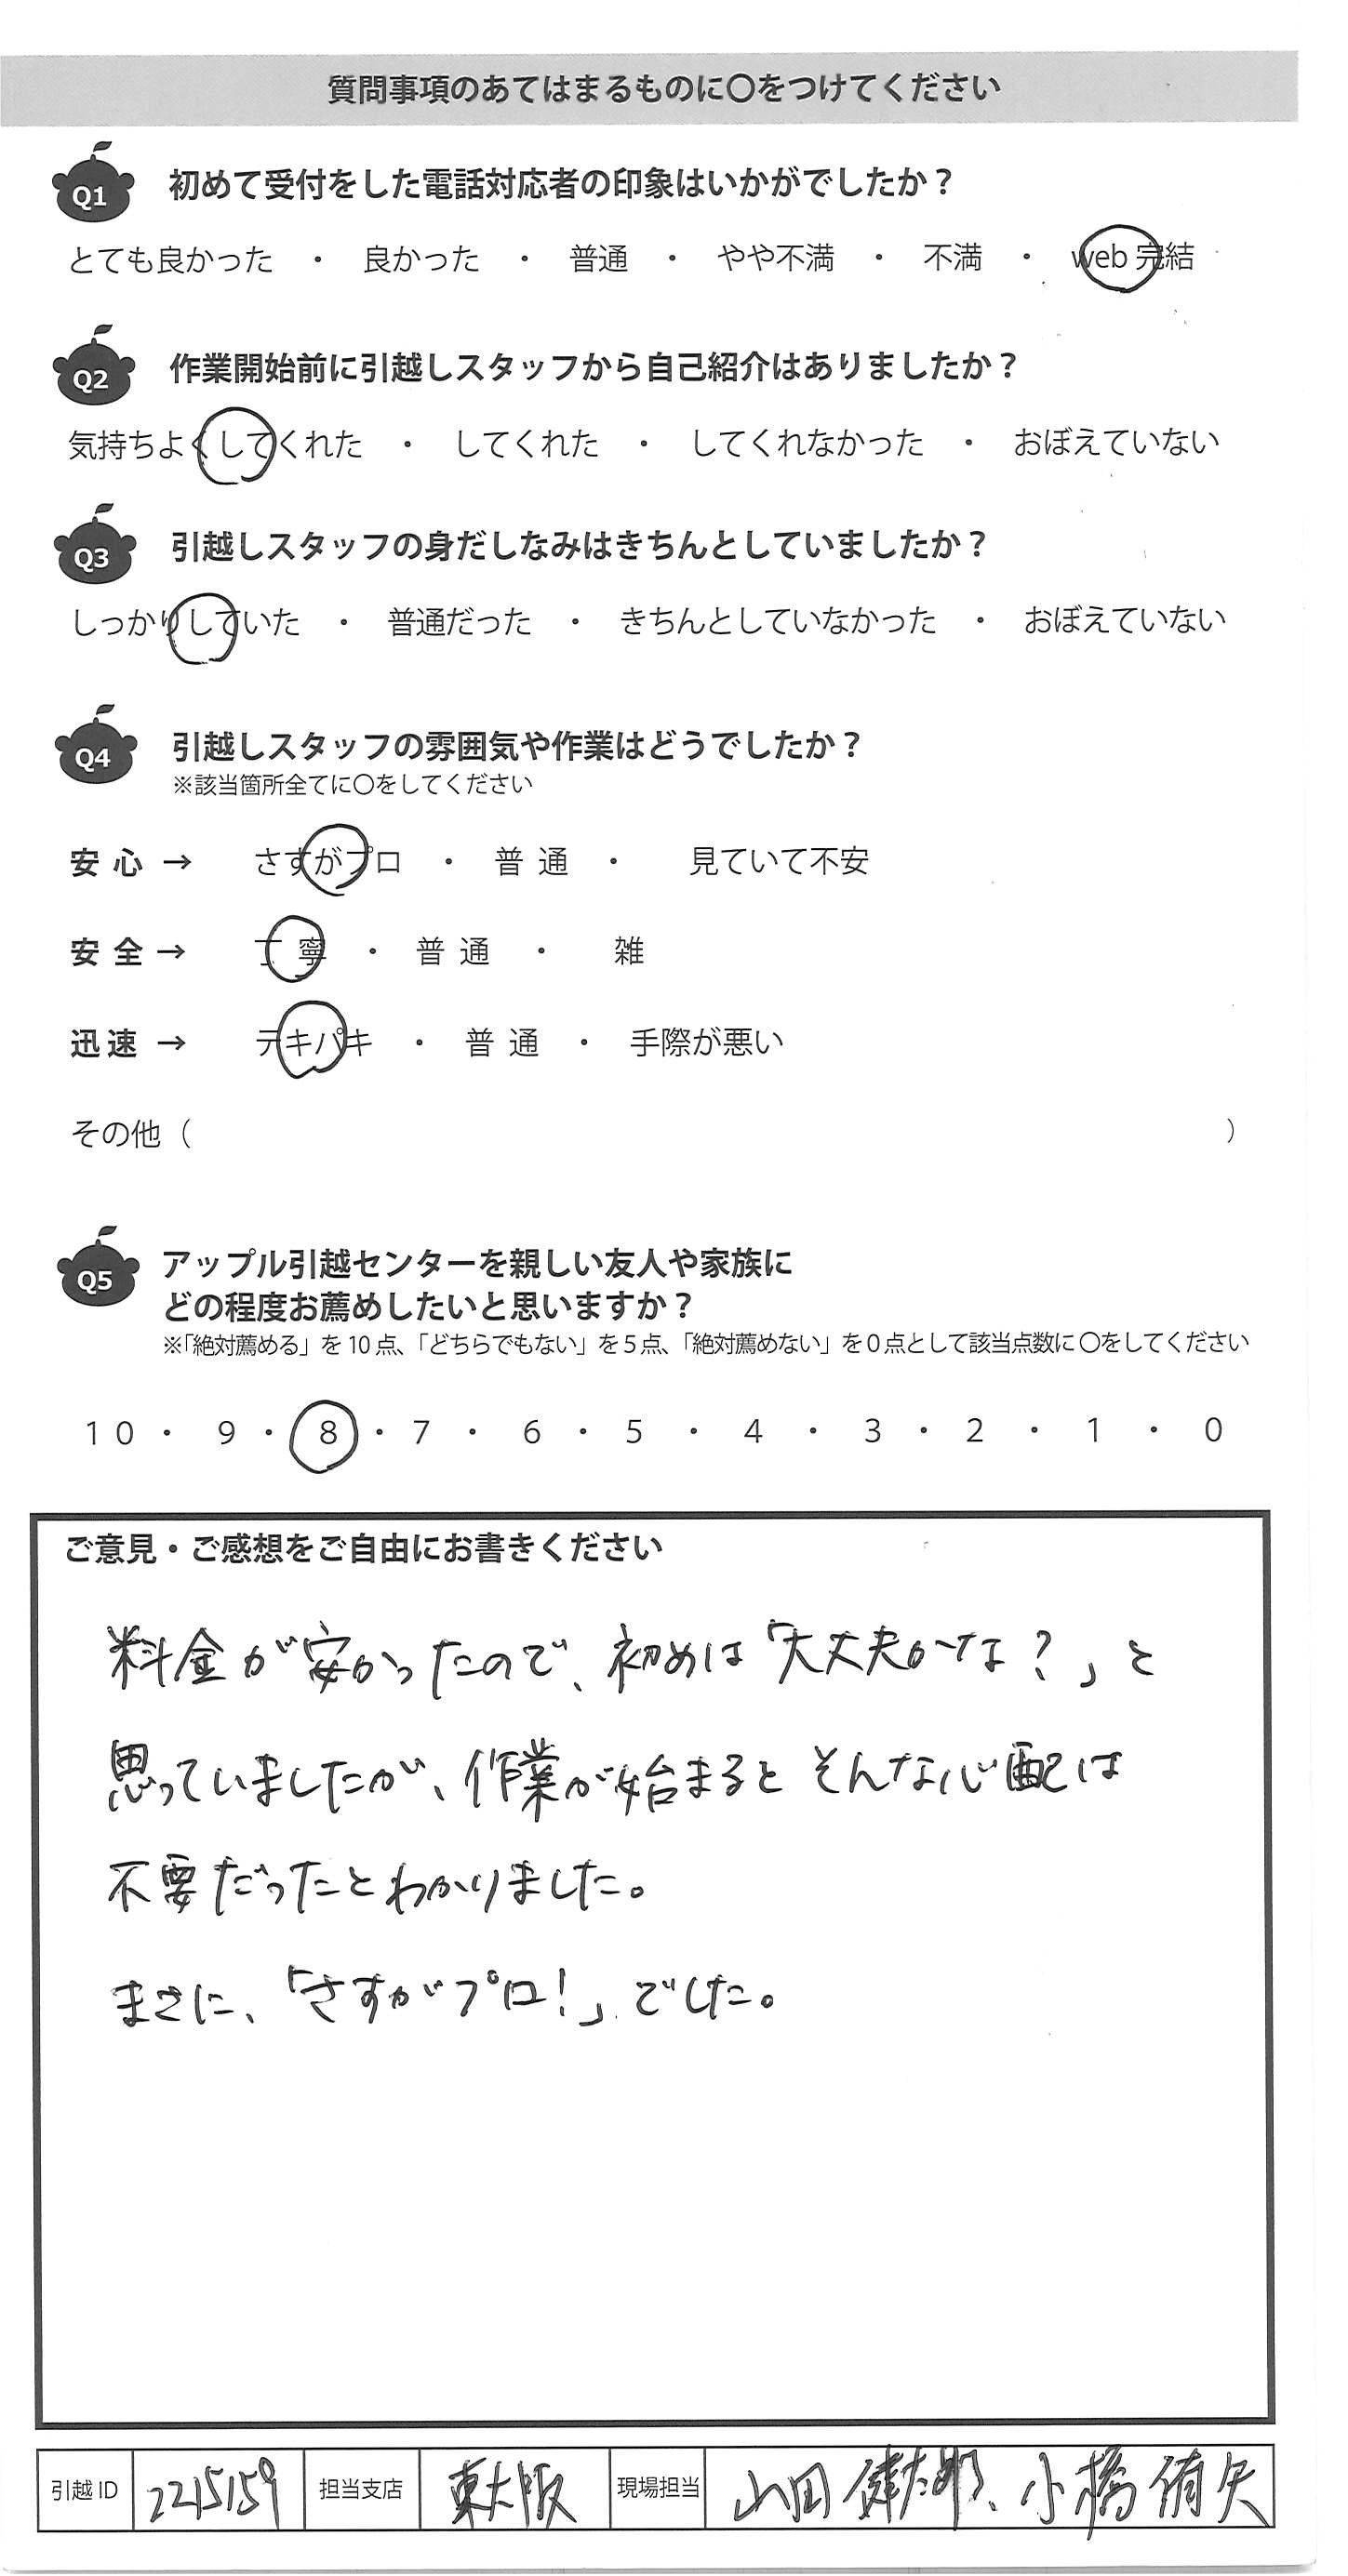 質問事項のあてはまるものに〇をつけてください
Q1 初めて受付をした電話対応者の印象はいかがでしたか？
とても良かった ・ 良かった ・ 普通 ・ やや不満 ・ 不満 ・ web 完結
Q2 作業開始前に引越しスタッフから自己紹介はありましたか？
気持ちよくしてくれた ・ してくれた ・ してくれなかった ・ おぼえていない
Q3 引越しスタッフの身だしなみはきちんとしていましたか？
しっかりしていた ・ 普通だった ・ きちんとしていなかった ・ おぼえていない
Q4 引越しスタッフの雰囲気や作業はどうでしたか？
※該当箇所全てに〇をしてください
安心 → さすがプロ ・ 普通 ・ 見ていて不安
安全 → 丁寧 ・ 普通 ・ 雑
迅速 → テキパキ ・ 普通 ・ 手際が悪い
その他（ ）
Q5 アップル引越センターを親しい友人や家族に
どの程度お薦めしたいと思いますか？
※「絶対薦める」を10点、「どちらでもない」を5点、「絶対薦めない」を0点として該当点数に〇をしてください
10 ・ 9 ・ 8 ・ 7 ・ 6 ・ 5 ・ 4 ・ 3 ・ 2 ・ 1 ・ 0
ご意見・ご感想をご自由にお書きください
料金が安かったので、初めは「大丈夫かな？」と
思っていましたが、作業が始まるとそんな心配は
不要だったとわかりました。
まさに、「さすがプロ！」でした。
引越ID 2215159 担当支店 東大阪 現場担当 山田 健太郎、小橋 侑矢